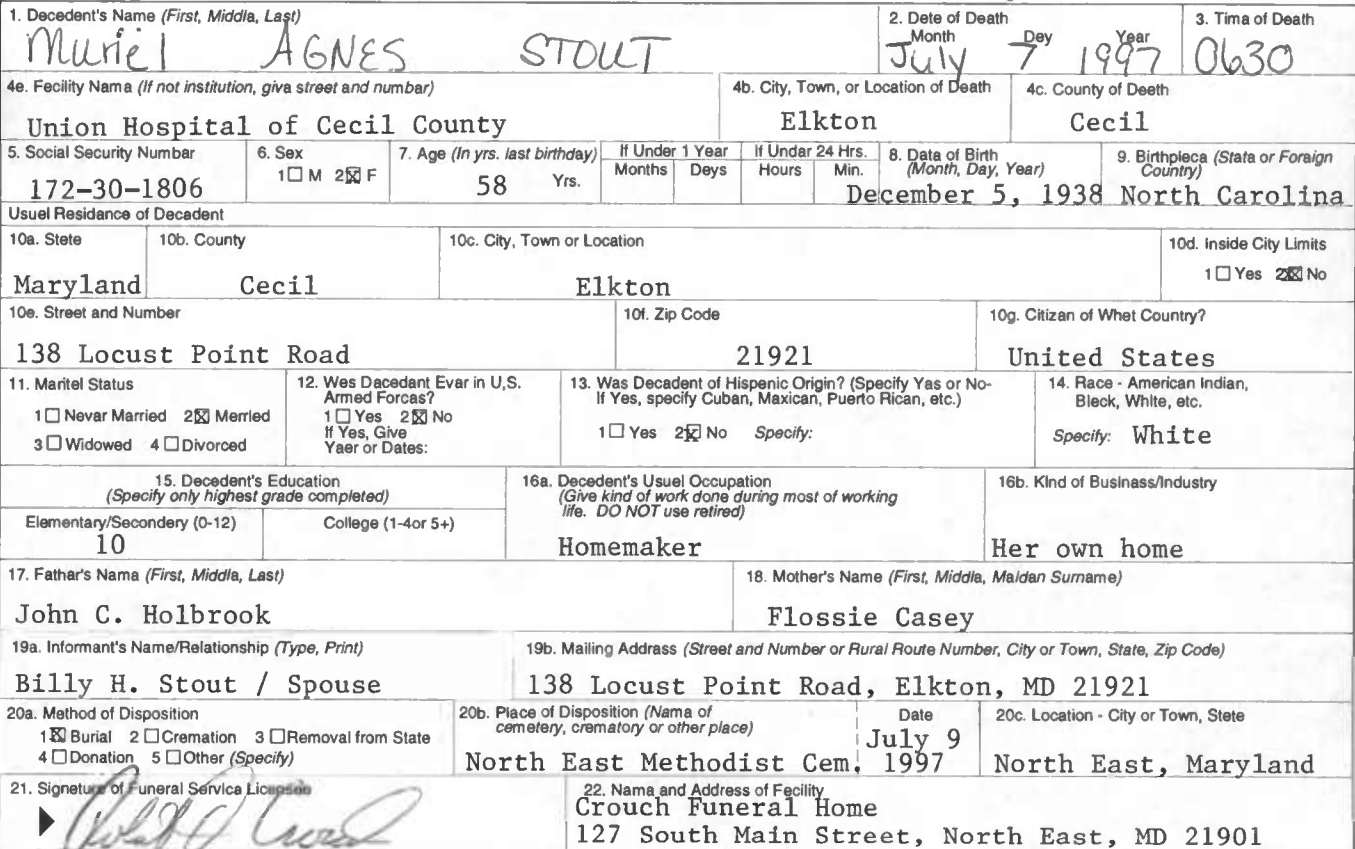 1. Decedent's Name (First, Middla, Last)
Muriel AGNES STOUT
2. Dete of Death
Month Dey Year
July 7 1997
3. Tima of Death
0630
4e. Fecility Name (If not institution, giva street and numbar)
Union Hospital of Cecil County
4b. City, Town, or Location of Death
Elkton
4c. County of Deeth
Cecil
5. Social Security Numbar
172-30-1806
6. Sex
1☐ M 2☒ F
7. Age (In yrs. last birthday)
58 Yrs.
If Under 1 Year
Months Deys
If Undar 24 Hrs.
Hours Min.
8. Data of Birth
(Month, Day, Year)
December 5, 1938
9. Birthpleca (Stata or Foraign
Country)
North Carolina
Usuel Residance of Decadent
10a. Stete
Maryland
10b. County
Cecil
10c. City, Town or Location
Elkton
10d. Inside City Limits
1☐ Yes 2☒ No
10e. Street and Number
138 Locust Point Road
10f. Zip Code
21921
10g. Citizan of Whet Country?
United States
11. Maritel Status
1☐ Nevar Married 2☒ Merrled
3☐ Widowed 4☐ Divorced
12. Wes Dacedant Evar in U,S.
Armed Forcas?
1☐ Yes 2☒ No
If Yes, Give
Yaer or Dates:
13. Was Decadent of Hispenic Origin? (Specify Yas or No-
If Yes, specify Cuban, Maxican, Puerto Rican, etc.)
1☐ Yes 2☒ No Specify:
14. Race - American Indian,
Bleck, White, etc.
Specify: White
15. Decedent's Education
(Specify only highest grade completed)
Elementary/Secondery (0-12)
10
College (1-4or 5+)
16a. Decedent's Usuel Occupation
(Give kind of work done during most of working
life. DO NOT use retired)
Homemaker
16b. Kind of Businass/Industry
Her own home
17. Fathar's Name (First, Middla, Last)
John C. Holbrook
18. Mother's Name (First, Middla, Maidan Surname)
Flossie Casey
19a. Informant's Name/Relationship (Type, Print)
Billy H. Stout / Spouse
19b. Mailing Address (Street and Number or Rural Route Number, City or Town, State, Zip Code)
138 Locust Point Road, Elkton, MD 21921
20a. Method of Disposition
1☒ Burial 2 ☐ Cremation 3 ☐ Removal from State
4 ☐ Donation 5 ☐ Other (Specify)
20b. Place of Disposition (Nama of
cemetery, crematory or other place)
North East Methodist Cem.
Date
July 9
1997
20c. Location - City or Town, Stete
North East, Maryland
21. Signeture of Funeral Servica Licensee
22. Nama and Address of Fecility
Crouch Funeral Home
127 South Main Street, North East, MD 21901